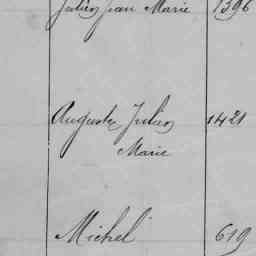 Julien Jean Marie 1396
Auguste Julien 1421
Marie
Michel 619